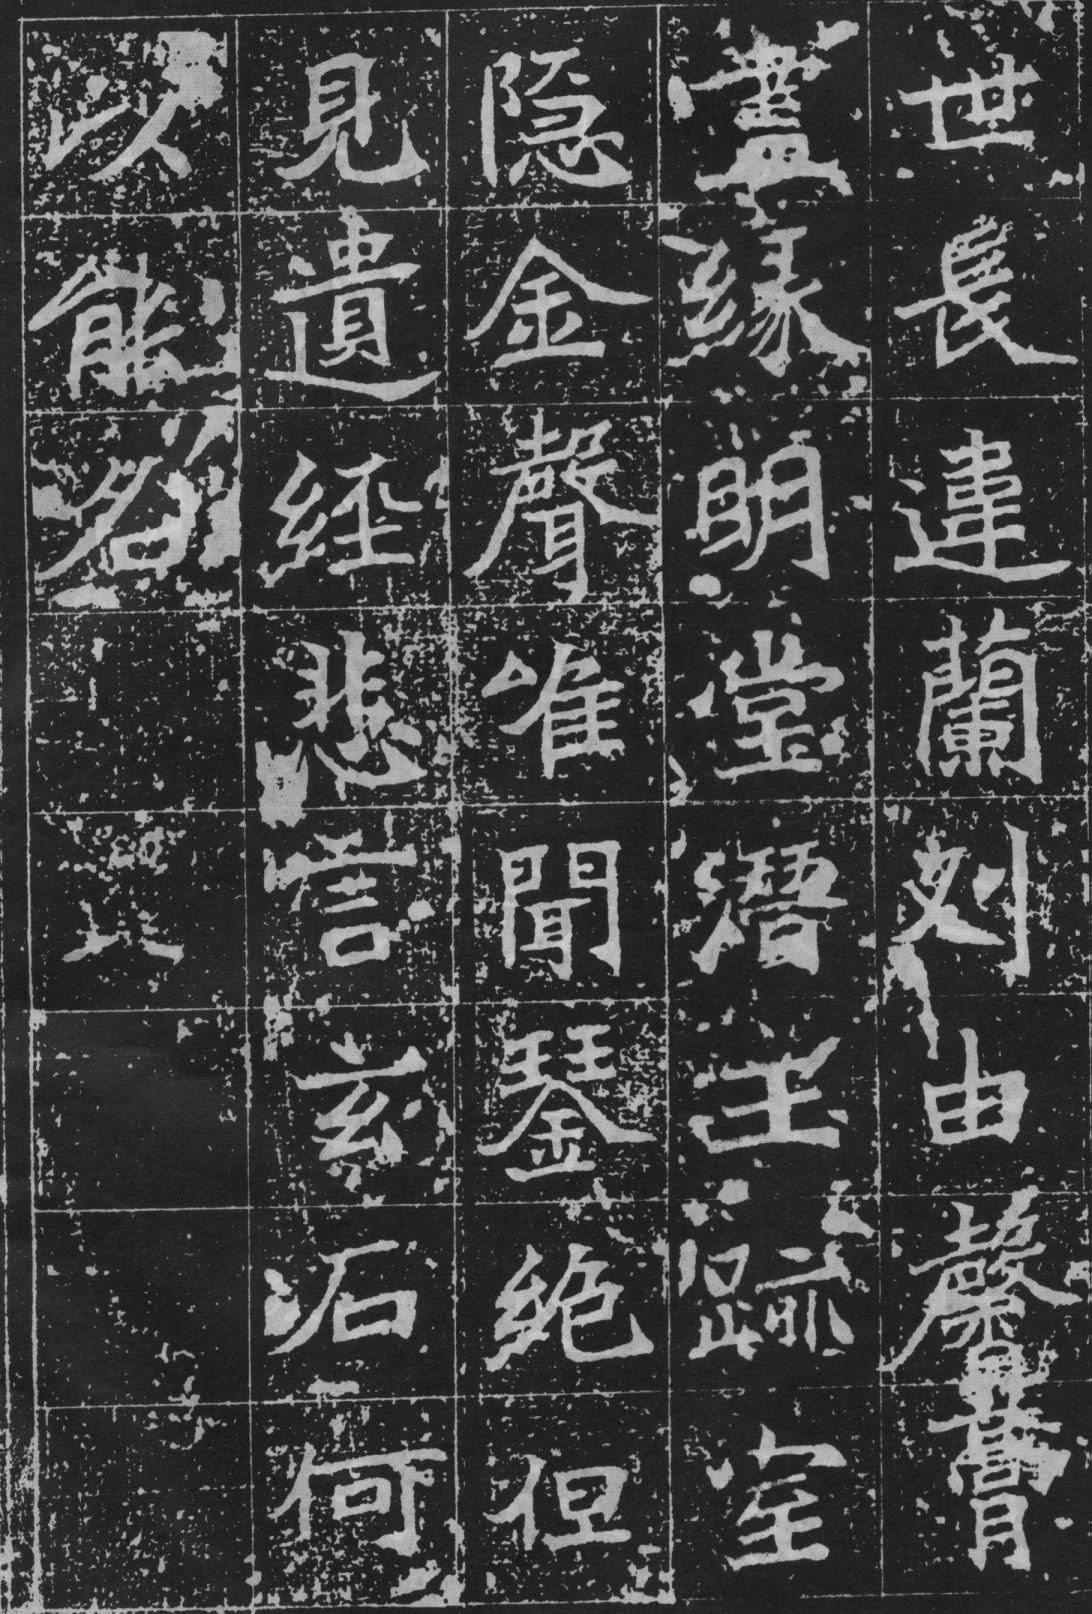 世長違蘭刈由馨膏
盡緣明堂潛玉跡室
隐金聲唯聞琴絶但
見遺經悲言玄石何
以能名